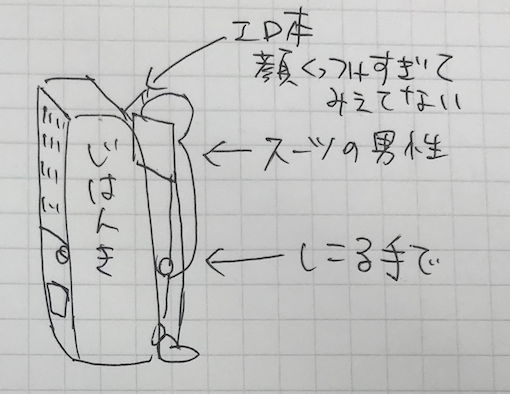 エロ本
顔くっつけすぎて
みえてない
スーツの男性
じはんき
しこる手で